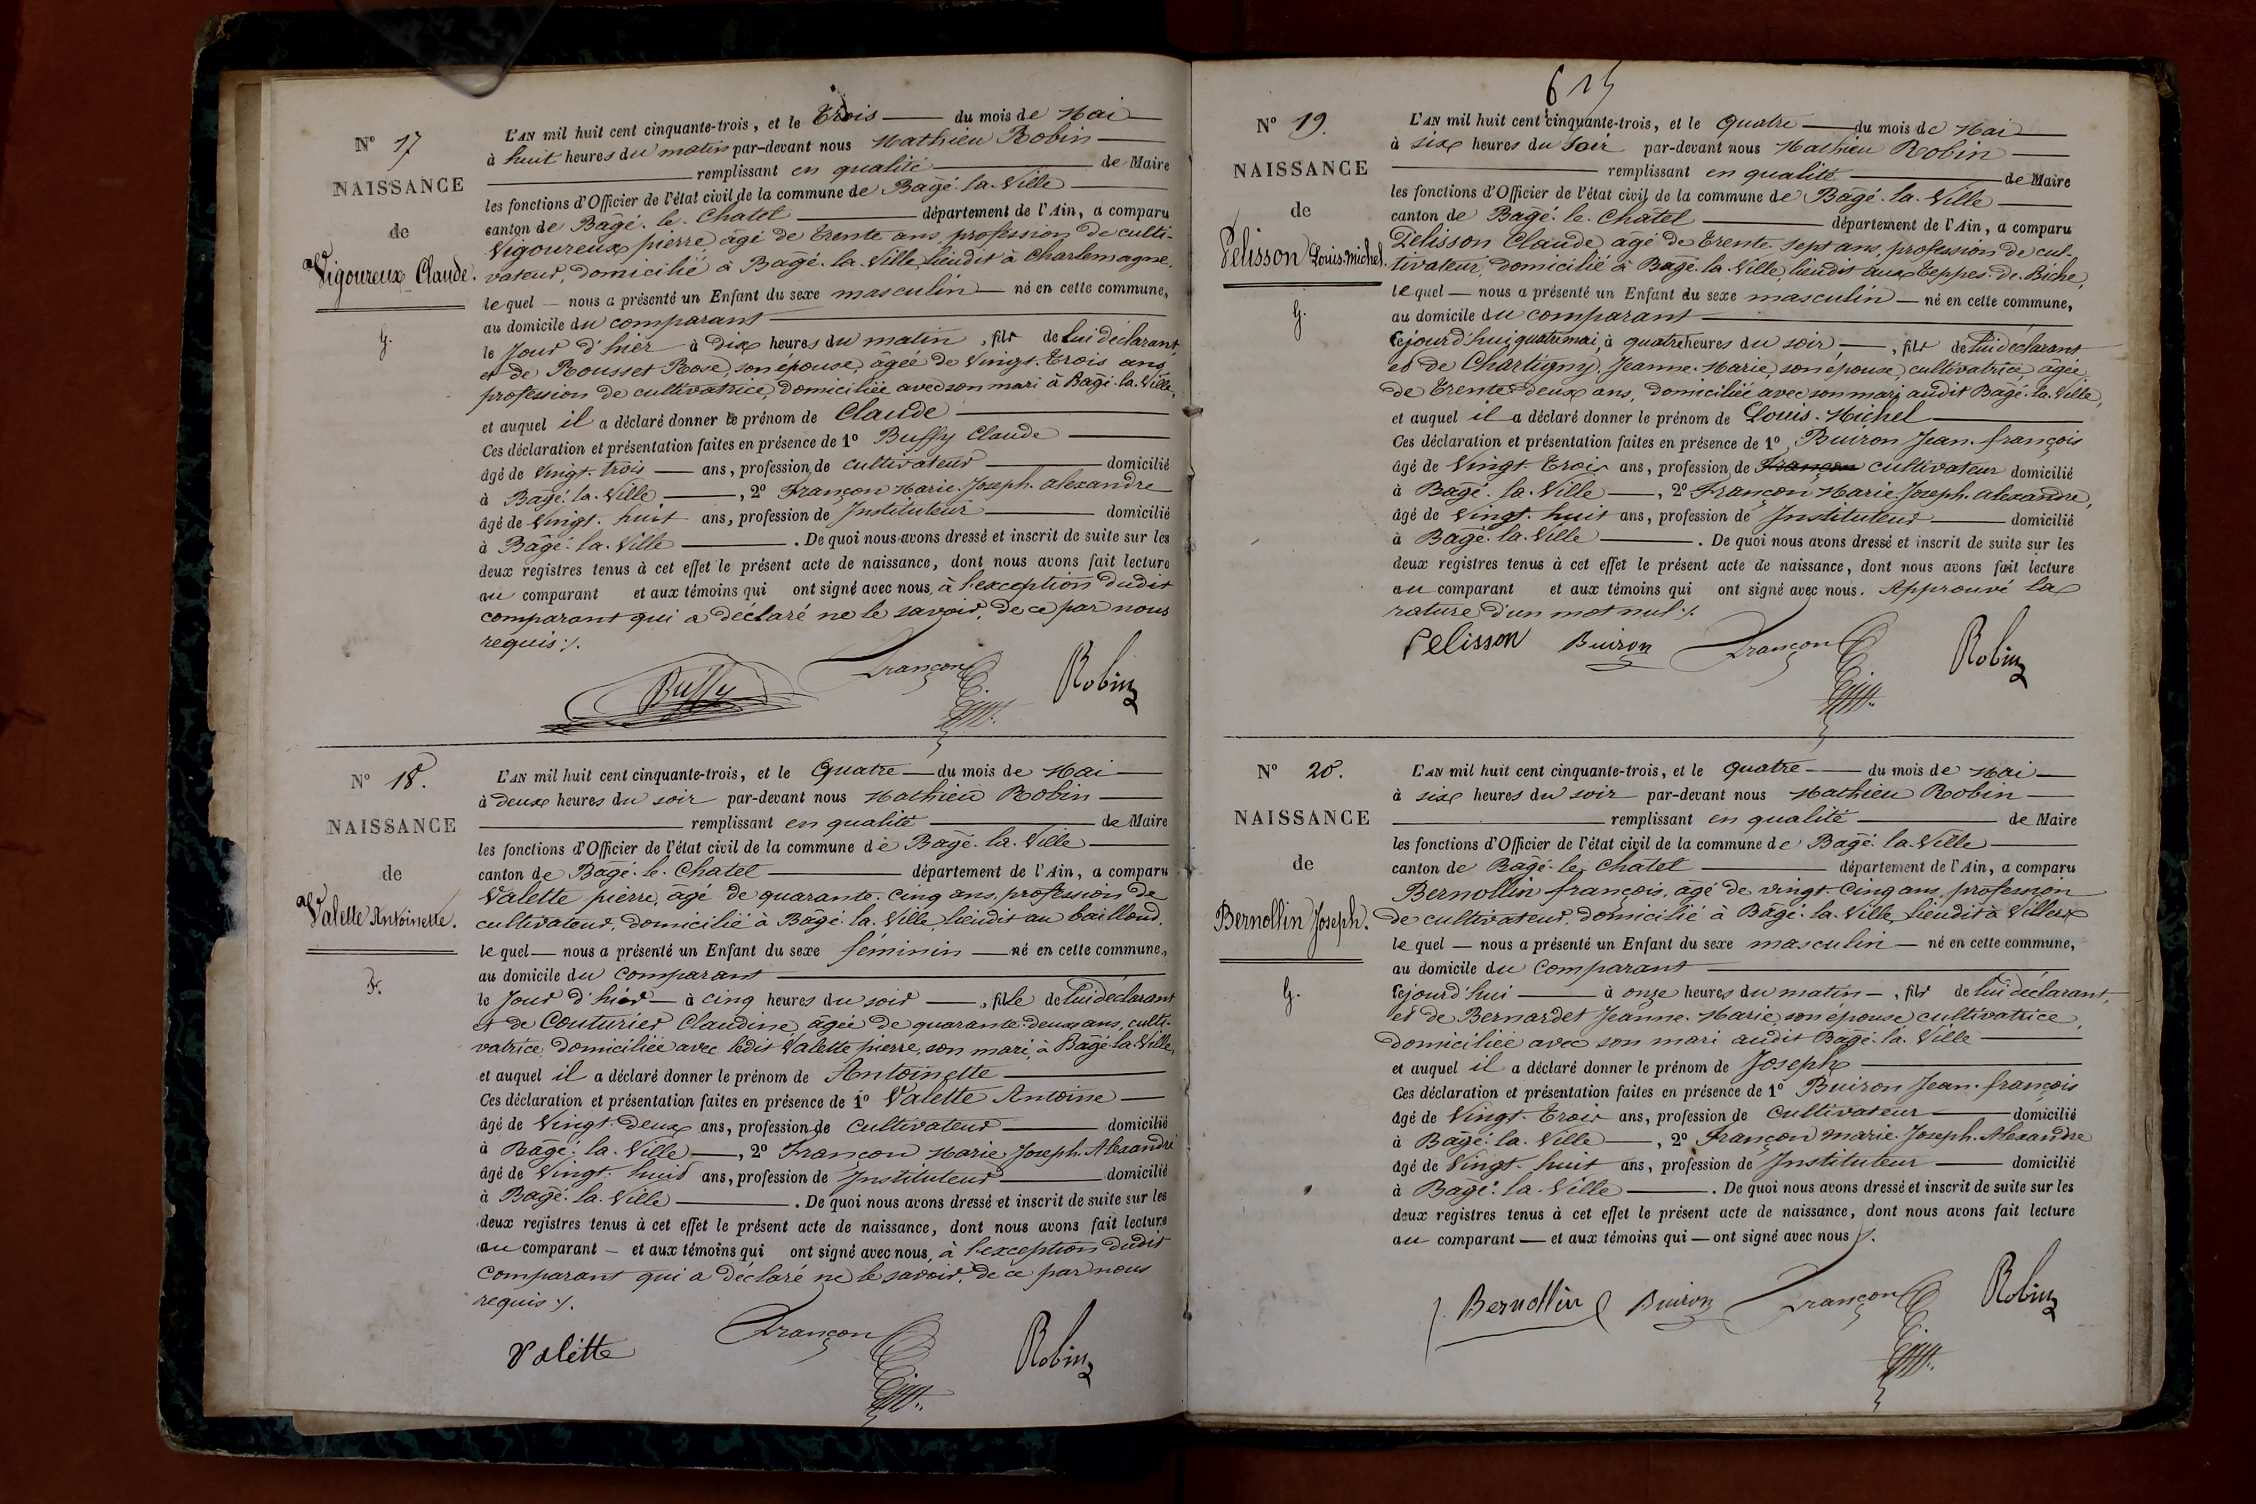 Nº 17
NAISSANCE
de
Vigoureux Claude.
g.
L'AN mil huit cent cinquante-trois, et le Trois du mois de Mai
à huit heures du matin par-devant nous Mathieu Robin
remplissant en qualité de Maire
les fonctions d'Officier de l'état civil de la commune de Bâgé-la-Ville
canton de Bâgé-le-Chatel département de l'Ain, a comparu
Vigoureux pierre, âgé de trente ans, profession de culti-
vateur, domicilié à Bagé-la-Ville, lieudit à Charlemagne,
lequel nous a présenté un Enfant du sexe masculin né en cette commune,
au domicile du comparant
le Jour d'hier à dix heures du matin, fils de lui déclarant,
et de Rousset Rose, son épouse, âgée de Vingt-trois ans,
profession de cultivatrice, domiciliée avec son mari à Bâgé-la-Ville,
et auquel il a déclaré donner le prénom de Claude
Ces déclaration et présentation faites en présence de 1º Buffy Claude
âgé de Vingt-trois ans, profession de cultivateur domicilié
à Bâgé-la-Ville, 2º Françon Marie-Joseph-alexandre
âgé de Vingt-huit ans, profession de Instituteur domicilié
à Bâgé-la-Ville. De quoi nous avons dressé et inscrit de suite sur les
deux registres tenus à cet effet le présent acte de naissance, dont nous avons fait lecture
au comparant et aux témoins qui ont signé avec nous, à l'exception dudit
comparant qui a déclaré ne le savoir, de ce par nous
requis ./.
Buffy Françon Robin
Nº 18.
NAISSANCE
de
Valette Antoinette.
F.
L'AN mil huit cent cinquante-trois, et le Quatre du mois de Mai
à deux heures du soir par-devant nous Mathieu Robin
remplissant en qualité de Maire
les fonctions d'Officier de l'état civil de la commune de Bâgé-la-Ville
canton de Bâgé-le-Chatel département de l'Ain, a comparu
Valette pierre, âgé de quarante-cinq ans, profession de
cultivateur, domicilié à Bâgé-la-Ville, lieudit au baillond,
lequel nous a présenté un Enfant du sexe feminin né en cette commune,
au domicile du comparant
le Jour d'hier à cinq heures du soir, fille de lui déclarant
et de Couturier Claudine, âgée de quarante-deux ans, culti-
vatrice, domiciliée avec ledit Valette pierre, son mari, à Bâgé-la-Ville,
et auquel il a déclaré donner le prénom de Antoinette
Ces déclaration et présentation faites en présence de 1º Valette Antoine
âgé de Vingt-deux ans, profession de cultivateur domicilié
à Bâgé-la-Ville, 2º Françon Marie-Joseph-Alexandre
âgé de Vingt-huit ans, profession de Instituteur domicilié
à Bâgé-la-Ville. De quoi nous avons dressé et inscrit de suite sur les
deux registres tenus à cet effet le présent acte de naissance, dont nous avons fait lecture
au comparant et aux témoins qui ont signé avec nous, à l'exception dudit
comparant qui a déclaré ne le savoir, de ce par nous
requis ./.
Valette Françon Robin
Nº 19.
NAISSANCE
de
Pelisson Louis-Michel.
g.
L'AN mil huit cent cinquante-trois, et le Quatre du mois de Mai
à six heures du Soir par-devant nous Mathieu Robin
remplissant en qualité de Maire
les fonctions d'Officier de l'état civil de la commune de Bâgé-la-Ville
canton de Bâgé-le-Châtel département de l'Ain, a comparu
Pelisson Claude, âgé de trente-sept ans, profession de cul-
tivateur, domicilié à Bagé-la-Ville, lieudit aux Teppes-de-Biche,
lequel nous a présenté un Enfant du sexe masculin né en cette commune,
au domicile du comparant
cejourd'hui quatre mai, à quatre heures du soir, fils de lui déclarant
et de Chartigny Jeanne-Marie, son épouse, cultivatrice âgée
de trente-deux ans, domiciliée avec son mari audit Bâgé-la-Ville,
et auquel il a déclaré donner le prénom de Louis-Michel
Ces déclaration et présentation faites en présence de 1º Buiron Jean-françois
âgé de Vingt-trois ans, profession de Françon cultivateur domicilié
à Bâgé-la-Ville, 2º Françon Marie-Joseph-alexandre,
âgé de Vingt-huit ans, profession de Instituteur domicilié
à Bagé-la-Ville. De quoi nous avons dressé et inscrit de suite sur les
deux registres tenus à cet effet le présent acte de naissance, dont nous avons fait lecture
au comparant et aux témoins qui ont signé avec nous. Approuvé la
rature d'un mot nul ./.
Pelisson Buiron Françon Robin
Nº 20.
NAISSANCE
de
Bernollin Joseph.
g.
L'AN mil huit cent cinquante-trois, et le quatre du mois de Mai
à six heures du soir par-devant nous Mathieu Robin
remplissant en qualité de Maire
les fonctions d'Officier de l'état civil de la commune de Bâgé-la-Ville
canton de Bâgé-le-Chatel département de l'Ain, a comparu
Bernollin françois, âgé de vingt-cinq ans, profession
de cultivateur, domicilié à Bâgé-la-Ville, lieudit à Villeux
lequel nous a présenté un Enfant du sexe masculin né en cette commune,
au domicile du comparant
cejourd'hui à onze heures du matin, fils de lui déclarant,
et de Bernardet Jeanne-Marie, son épouse, cultivatrice,
domiciliée avec son mari audit Bâgé-la-Ville
et auquel il a déclaré donner le prénom de Joseph
Ces déclaration et présentation faites en présence de 1º Buiron Jean-françois
âgé de Vingt-trois ans, profession de Cultivateur domicilié
à Bâgé-la-Ville, 2º Françon Marie-Joseph-Alexandre
âgé de Vingt-huit ans, profession de Instituteur domicilié
à Bagé-la-Ville. De quoi nous avons dressé et inscrit de suite sur les
deux registres tenus à cet effet le présent acte de naissance, dont nous avons fait lecture
au comparant et aux témoins qui ont signé avec nous ./.
Bernollin Buiron Françon Robin